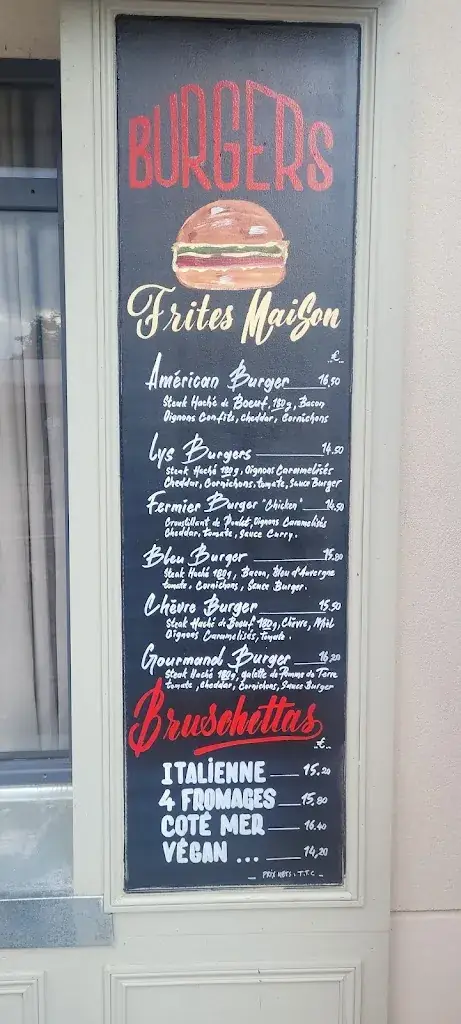 BURGERS
Frites Maison
€
Américan Burger 16,50
Steak Haché de Boeuf, 180g, Bacon
Oignons Confits, Cheddar, Cornichons
Lys Burgers 14.50
Steak Haché 180g, Oignons Caramélisés
Cheddar, Cornichons, tomate, Sauce Burger
Fermier Burger "Chicken" 14,50
Croustillant de Poulet, Oignons Caramélisés
Cheddar, tomate, Sauce Curry.
Bleu Burger 15.80
Steak Haché 180g, Bacon, Bleu d'Auvergne
tomate, Cornichons, Sauce Burger.
Chèvre Burger 15.50
Steak Haché de Boeuf 180g, Chèvre, Miel
Oignons Caramélisés, tomate.
Gourmand Burger 16,20
Steak Haché 180g, galette de Pomme de Terre
tomate, Cheddar, Cornichons, Sauce Burger
Bruschettas
€
ITALIENNE 15.20
4 FROMAGES 15,80
COTÉ MER 16.40
VÉGAN ... 14,20
PRIX NETS. T.T.C